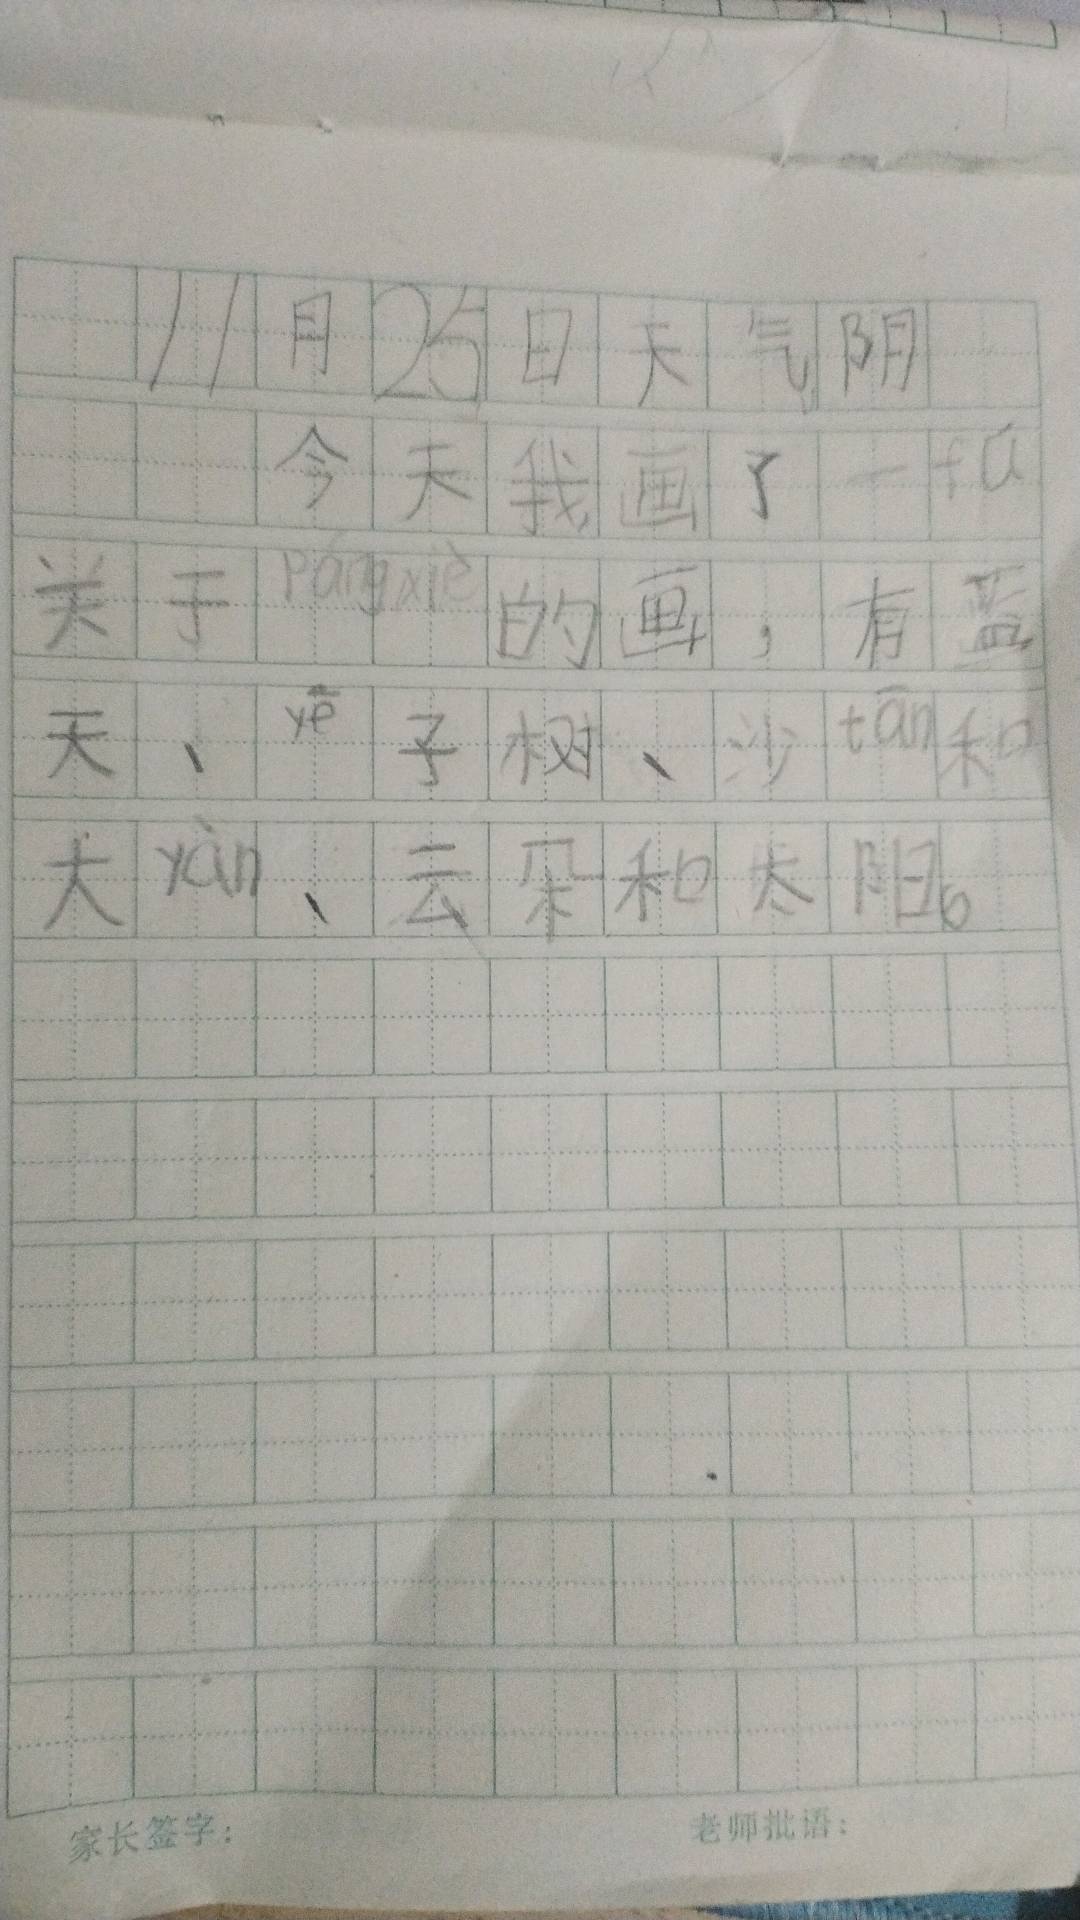 11月25日天气阴
今天我画了一fú
关于pángxiè的画，有蓝
天、yē子树、沙tān和
大yàn、云朵和太阳。
家长签字：
老师批语：